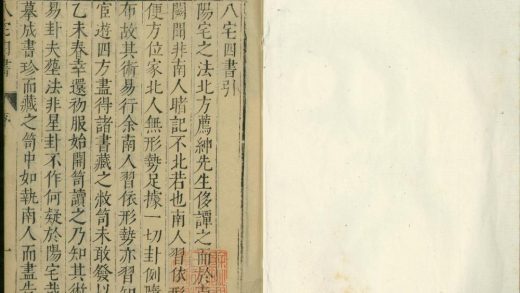 八宅四書引
陽宅之法北方薦紳先生侈譚之而於
闕聞非南人暗記不北若也南人習依形
便方位家北人無形勢足據一切卦例
布故其術易行余南人習依形勢亦習知
宦遊四方盡得諸書藏之敝笥未敢發以
乙未春幸還初服始開笥讀之乃知其術
易卦夫塋法非星卦不作何疑於陽宅哉
墓成書珍而藏之笥中如執南人而盡告
八宅四書